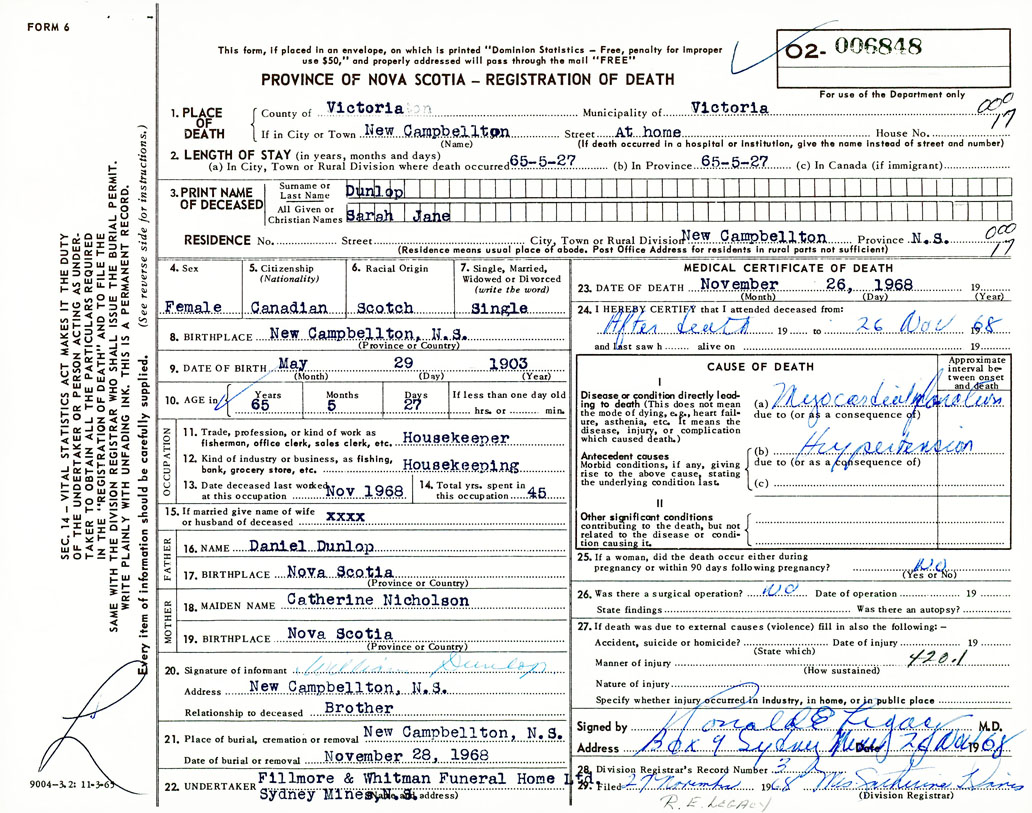 FORM 6
This form, if placed in an envelope, on which is printed "Dominion Statistics – Free, penalty for improper
use $50," and properly addressed will pass through the mail "FREE"
PROVINCE OF NOVA SCOTIA – REGISTRATION OF DEATH
02- 006848
For use of the Department only
000
17
SEC. 14 – VITAL STATISTICS ACT MAKES IT THE DUTY
OF THE UNDERTAKER OR PERSON ACTING AS UNDER-
TAKER TO OBTAIN ALL THE PARTICULARS REQUIRED
IN THE "REGISTRATION OF DEATH" AND TO FILE THE
SAME WITH THE DIVISION REGISTRAR WHO SHALL ISSUE THE BURIAL PERMIT.
WRITE PLAINLY WITH UNFADING INK. THIS IS A PERMANENT RECORD.
Every item of information should be carefully supplied. (See reverse side for instructions.)
1. PLACE OF DEATH
County of Victoria Municipality of Victoria
If in City or Town New Campbellton Street At home House No.
(Name) (If death occurred in a hospital or institution, give the name instead of street and number)
2. LENGTH OF STAY (in years, months and days)
(a) In City, Town or Rural Division where death occurred 65-5-27 (b) In Province 65-5-27 (c) In Canada (if immigrant)
3. PRINT NAME OF DECEASED
Surname or Last Name Dunlop
All Given or Christian Names Sarah Jane
RESIDENCE No. Street City, Town or Rural Division New Campbellton Province N.S.
000
17
(Residence means usual place of abode. Post Office Address for residents in rural parts not sufficient)
4. Sex
Female
5. Citizenship
(Nationality)
Canadian
6. Racial Origin
Scotch
7. Single, Married,
Widowed or Divorced
(write the word)
Single
8. BIRTHPLACE New Campbellton, N.S.
(Province or Country)
9. DATE OF BIRTH May 29 1903
(Month) (Day) (Year)
10. AGE in
Years Months Days If less than one day old
65 5 27 hrs. or min.
OCCUPATION
11. Trade, profession, or kind of work as
fisherman, office clerk, sales clerk, etc. Housekeeper
12. Kind of industry or business, as fishing,
bank, grocery store, etc. Housekeeping
13. Date deceased last worked
at this occupation Nov 1968
14. Total yrs. spent in
this occupation 45
15. If married give name of wife
or husband of deceased xxxx
FATHER
16. NAME Daniel Dunlop
17. BIRTHPLACE Nova Scotia
(Province or Country)
MOTHER
18. MAIDEN NAME Catherine Nicholson
19. BIRTHPLACE Nova Scotia
(Province or Country)
20. Signature of informant William Dunlop
Address New Campbellton, N.S.
Relationship to deceased Brother
21. Place of burial, cremation or removal New Campbellton, N.S.
Date of burial or removal November 28, 1968
22. UNDERTAKER Fillmore & Whitman Funeral Home Ltd.
Sydney Mines, N.S.
(Name and address)
9004-3.2: 11-3-65
MEDICAL CERTIFICATE OF DEATH
23. DATE OF DEATH November 26, 1968 19
(Month) (Day) (Year)
24. I HEREBY CERTIFY that I attended deceased from:
After death 19 to 26 Nov 1968
and last saw h alive on 19
CAUSE OF DEATH
Approximate
interval be-
tween onset
and death
I
Disease or condition directly lead-
ing to death (This does not mean
the mode of dying, e.g., heart fail-
ure, asthenia, etc. It means the
disease, injury, or complication
which caused death.)
(a) Myocardial
due to (or as a consequence of)
Antecedent causes
Morbid conditions, if any, giving
rise to the above cause, stating
the underlying condition last.
(b) Hypertension
due to (or as a consequence of)
(c)
II
Other significant conditions
contributing to the death, but not
related to the disease or condi-
tion causing it.
25. If a woman, did the death occur either during
pregnancy or within 90 days following pregnancy? NO
(Yes or No)
26. Was there a surgical operation? NO Date of operation 19
State findings Was there an autopsy?
27. If death was due to external causes (violence) fill in also the following: –
Accident, suicide or homicide? Date of injury 19
(State which)
Manner of injury 420.1
(How sustained)
Nature of injury
Specify whether injury occurred in industry, in home, or in public place
Signed by Ronald E Legacy M.D.
Address Box 9 Sydney Mines Date 26 Nov 1968
28. Division Registrar's Record Number 3
29. Filed 27 November 1968 Mrs Katherine
(Division Registrar)
R.E. LEGACY